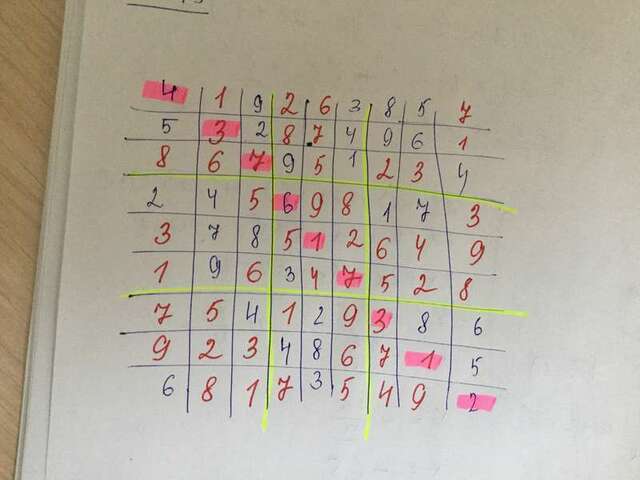 4 1 9 2 6 3 8 5 7
5 3 2 8 7 4 9 6 1
8 6 7 9 5 1 2 3 4
2 4 5 6 9 8 1 7 3
3 7 8 5 1 2 6 4 9
1 9 6 3 4 7 5 2 8
7 5 4 1 2 9 3 8 6
9 2 3 4 8 6 7 1 5
6 8 1 7 3 5 4 9 2